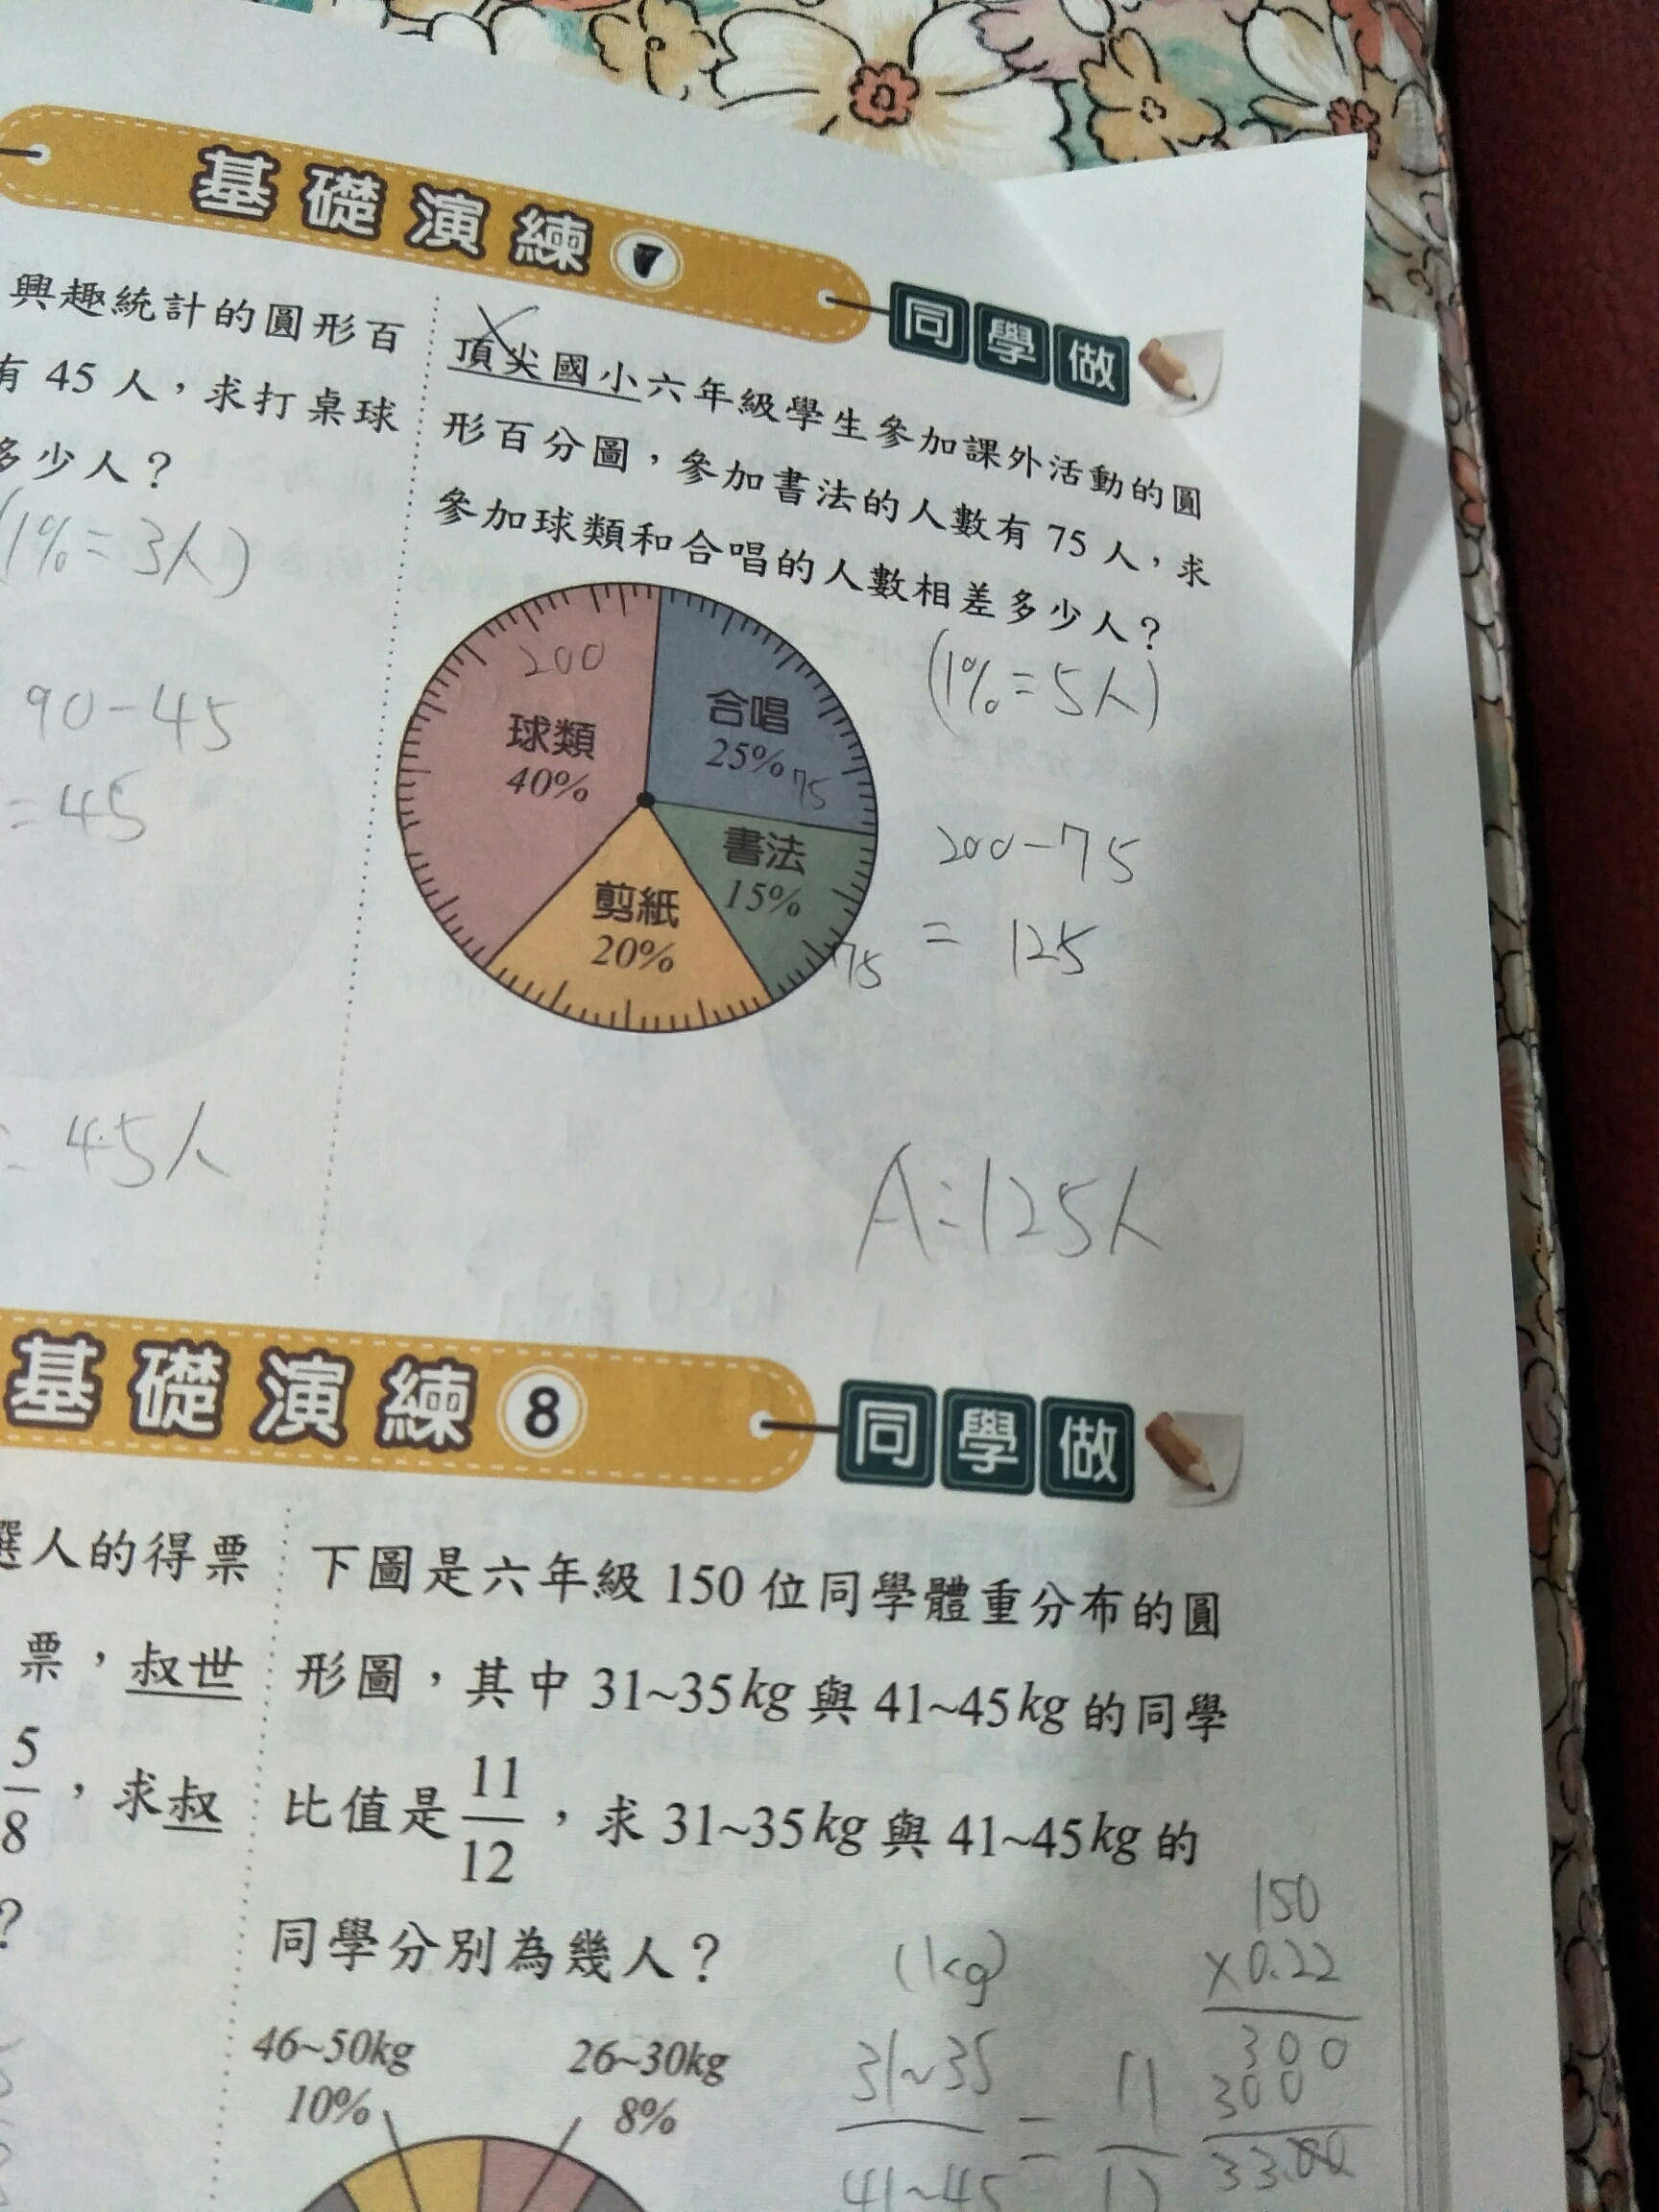 基礎演練 7
同學做
興趣統計的圓形百
有 45 人，求打桌球
多少人？
(1%=3人)
90-45
=45
= 45人
頂尖國小六年級學生參加課外活動的圓
形百分圖，參加書法的人數有 75 人，求
參加球類和合唱的人數相差多少人？
200
球類
40%
合唱
25%
75
書法
15%
75
剪紙
20%
(1%=5人)
200-75
= 125
A:125人
基礎演練 8
同學做
選人的得票
票，叔世
5/8，求叔
？
下圖是六年級 150 位同學體重分布的圓
形圖，其中 31~35kg 與 41~45kg 的同學
比值是 11/12，求 31~35kg 與 41~45kg 的
同學分別為幾人？
46~50kg
10%
26~30kg
8%
(kg)
31~35
41~45
=
11
12
150
×0.22
300
300
33.00